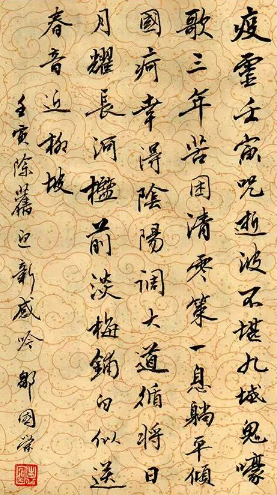 疫霾壬寅咒逝波不堪九域鬼嚎
歌三年苦困清零策一息躺平傾
國疴幸得陰陽調大道循將日
月耀長河檻前淡梅鋪白似送
春音近柳坡
壬寅除舊迎新感吟 鄒國榮